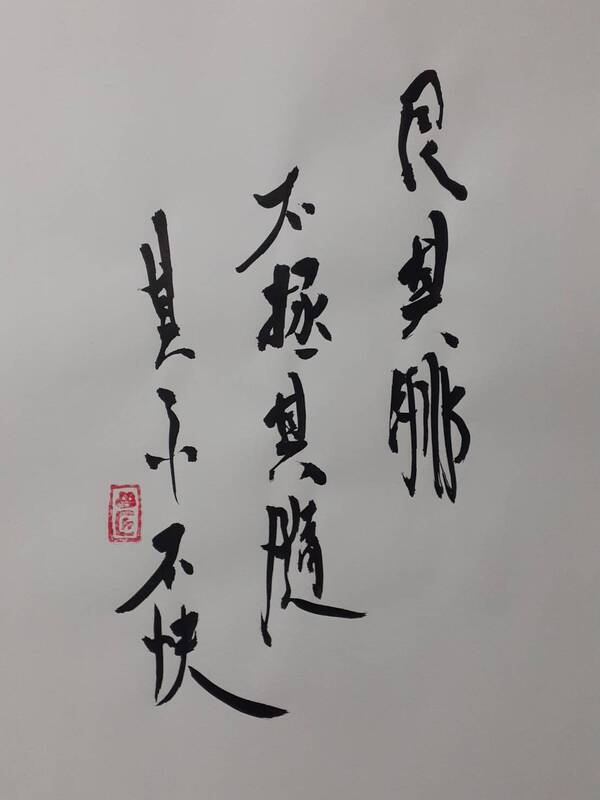 艮其腓
不拯其隨
其心不快